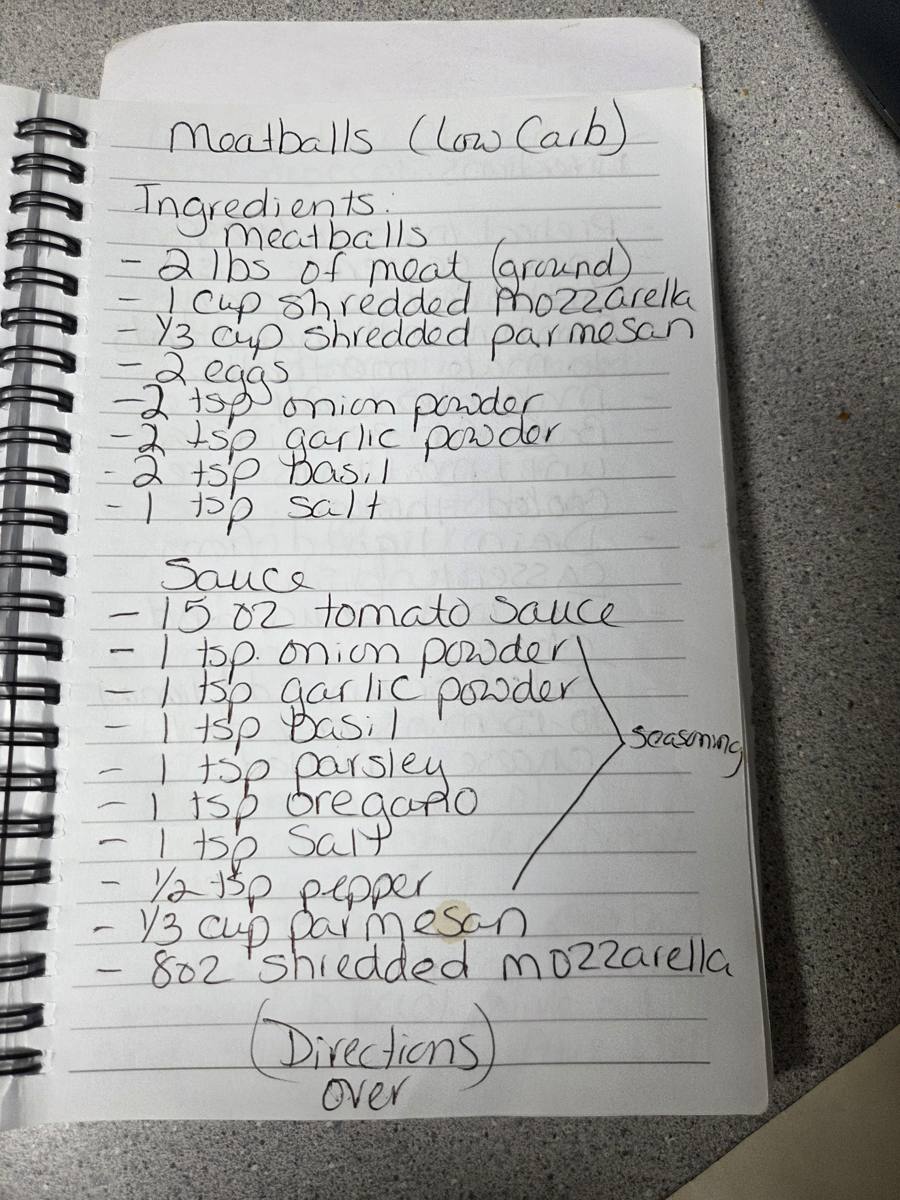 Meatballs (Low Carb)
Ingredients:
Meatballs
- 2 lbs of meat (ground)
- 1 cup shredded mozzarella
- 1/3 cup shredded parmesan
- 2 eggs
- 2 tsp onion powder
- 2 tsp garlic powder
- 2 tsp basil
- 1 tsp salt
Sauce
- 15 oz tomato sauce
- 1 tsp. onion powder
- 1 tsp garlic powder
- 1 tsp basil
seasoning
- 1 tsp parsley
- 1 tsp oregano
- 1 tsp salt
- 1/2 tsp pepper
- 1/3 cup parmesan
- 8oz shredded mozzarella
(Directions)
over